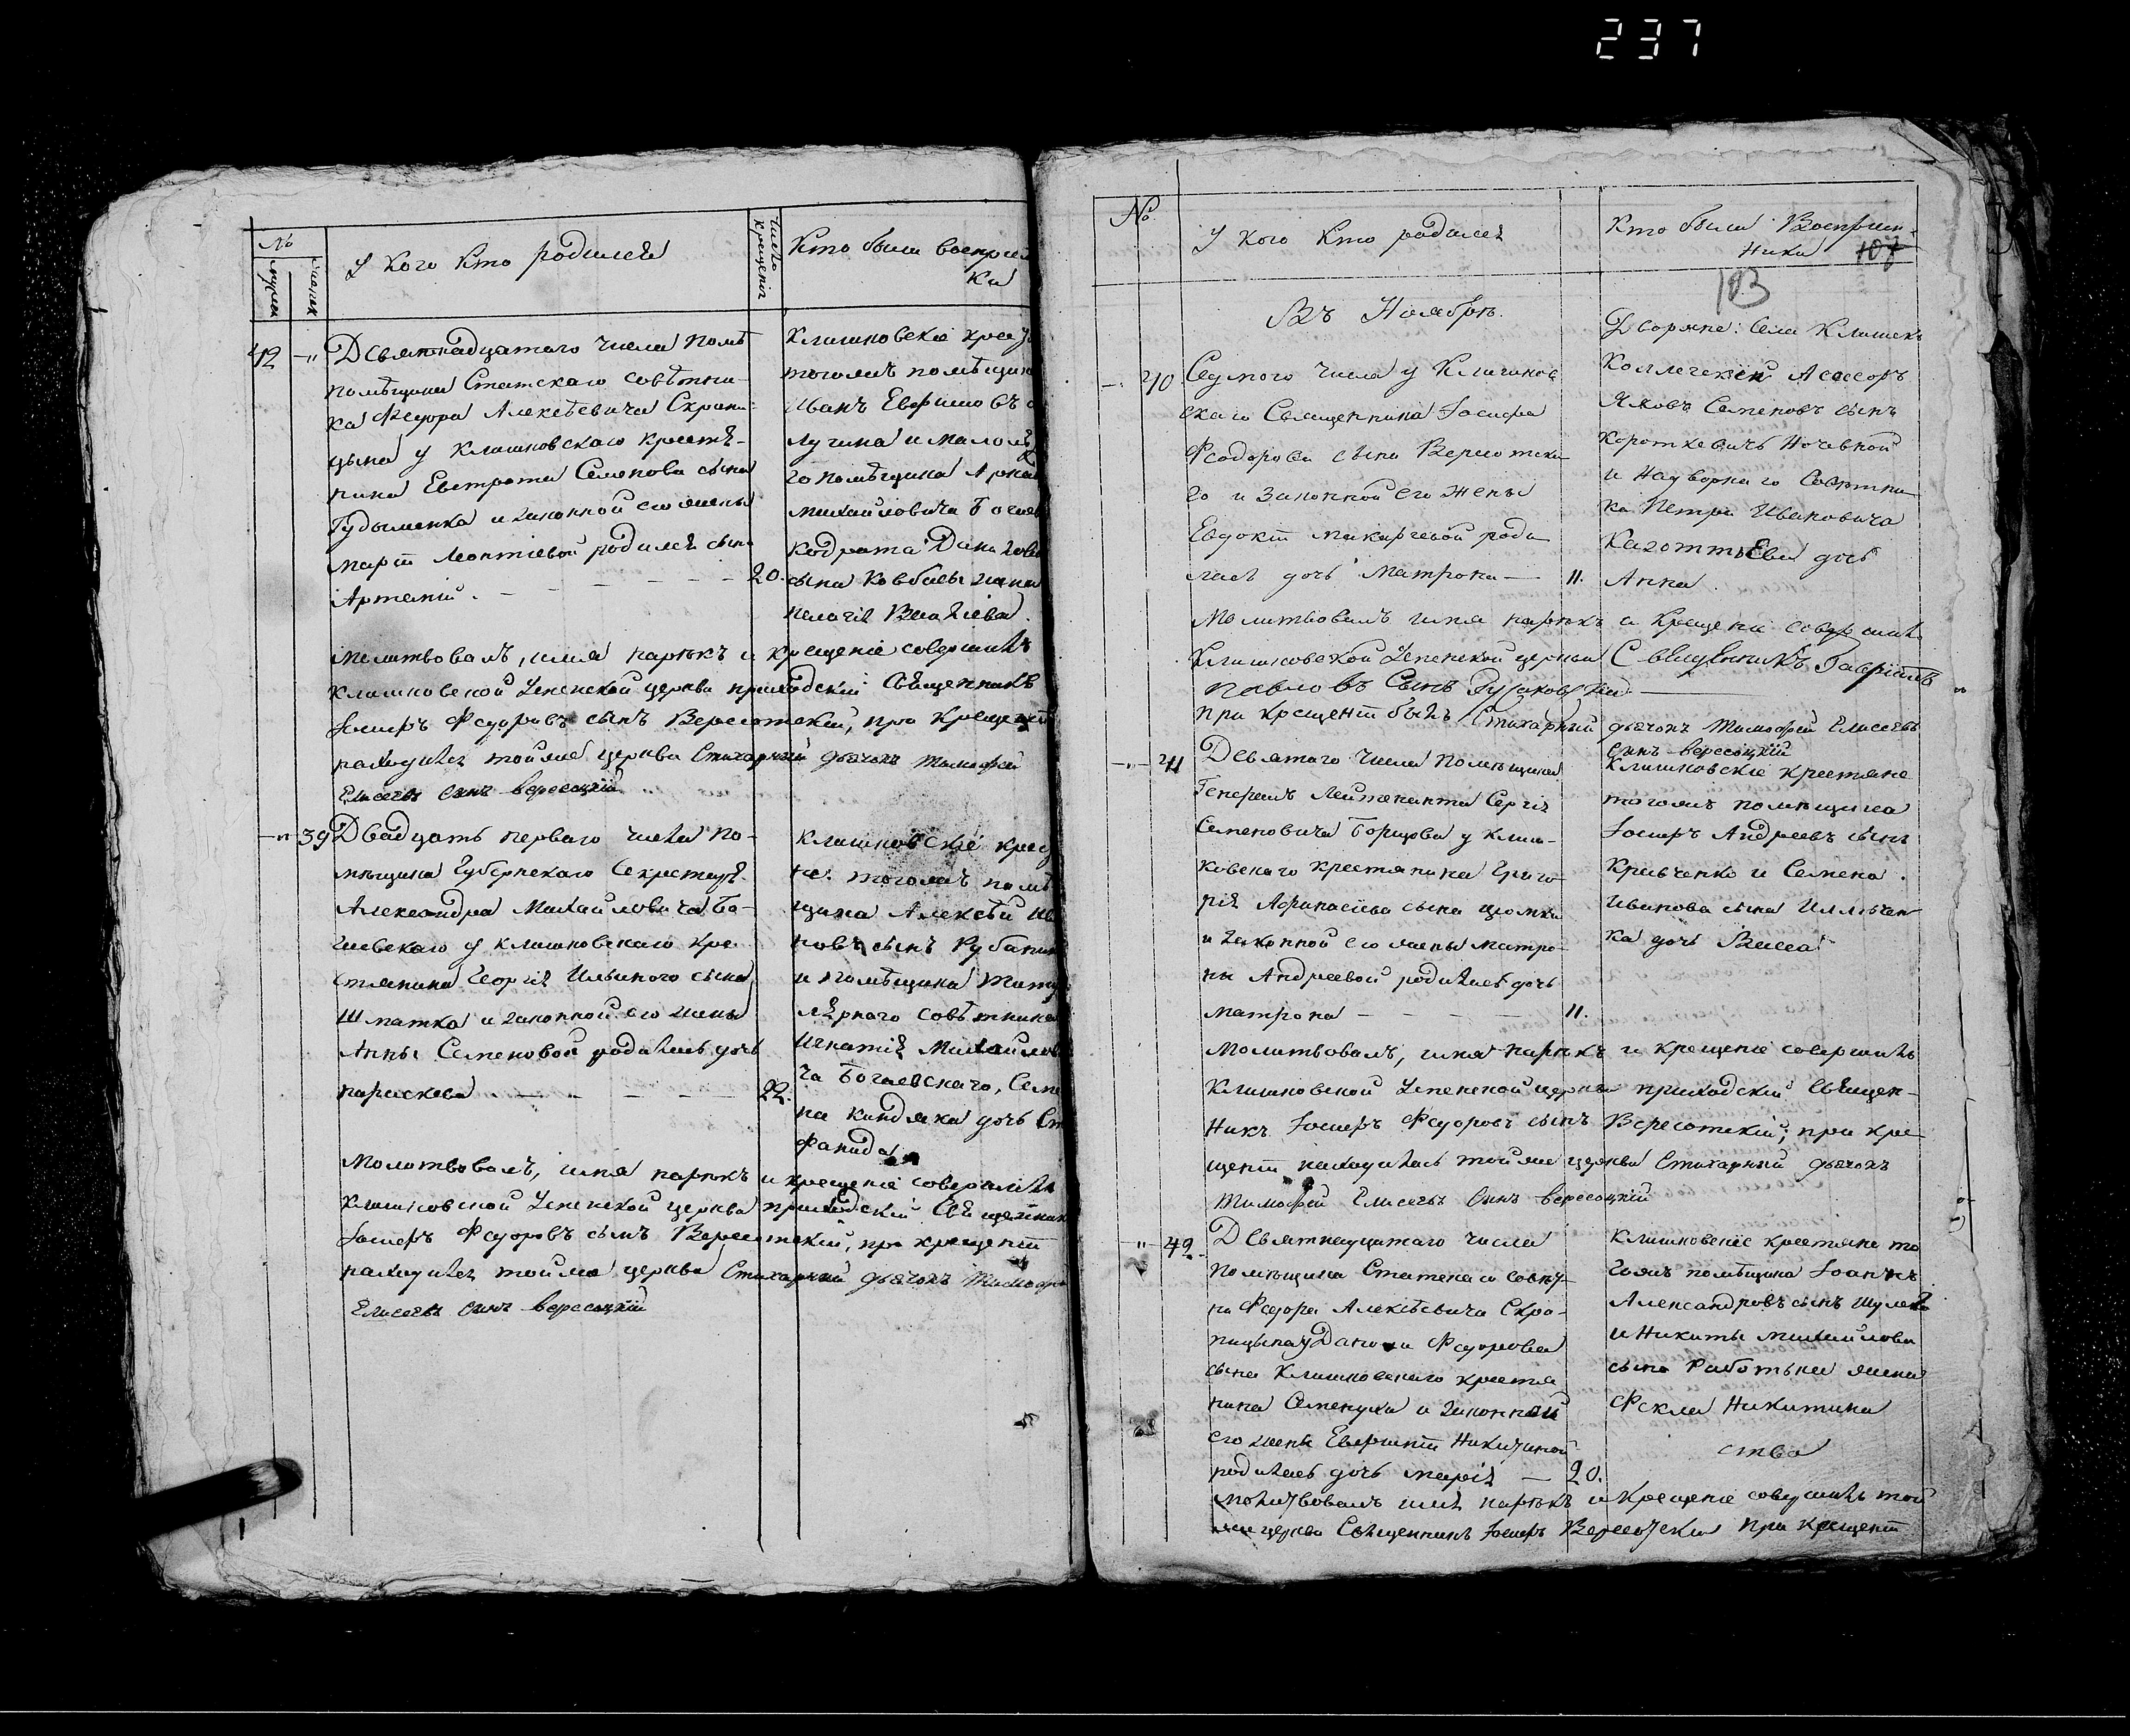 237
№
мужск
женск
У кого кто родился
Число крещенія
Кто были воспріем
ки
42 -"-
Девятнадцатаго числа помѣ
помѣщика Статскаго совѣтни-
ка Федора Алексѣевича Скрипи
цына у Клишковскаго крестья-
нина Евстрата Семенова сына
Гудыменка и законной его жены
Марѳ Леонтіевой родился сынъ
Артемій. - - - - - 20.
Клишковскіе крес
тогожъ помѣщик
Иванъ Евфимовъ с
Лучина и
го помѣщика Аркад
Михайловича Богаев
Кодрата Данилова
сына Ковбасы жена
Пелагія Василіева.
Молитвовалъ, имя нарѣкъ и крещеніе совершилъ
Клишковской Успенской церкви приходскій Священникъ
Іосифъ Федоровъ сынъ Вересотскій, при крещеніи
находился тойже церкви Стихарный дьячокъ Тимофей
Елисеевъ сынъ Вересоцкій
-"- 39
Двадцать перваго числа по-
мѣщика Губернскаго Секретаря
Александра Михайловича Бо-
гаевскаго у Клишковскаго кре-
стянина Георгія Ильиного сына
Шматка и законной его жены
Анны Семеновой родилась дочь
Параскева - - - - 22.
Клишковскіе крестя
не тогожъ помѣ
щика Алексѣй Ив
новъ сынъ Рубаник
и помѣщика Титу
лярного совѣтника
Игнатія Михайлов
ча Богаевскаго, Семе
на Киндяка дочь Сте
фанида
Молитвовалъ, имя нарѣкъ и крещеніе совершилъ
Клишковской Успенской церкви приходскій Священник
Іосифъ Федоровъ сынъ Вересотскій, при крещеніи
находился тойже церкви Стихарный дьячокъ Тимофей
Елисеевъ сынъ Вересоцкій
№
У кого кто родился
Кто были Воспріем-
ники 107
103
Въ Ноябрѣ.
-"- 40
Седмого числа у Клишков
скаго Священника Іосифа
Феодорова сына Вересотска
го и Законной его жены
Евдокіи Макарьевой роди
лась дочь Матрона — 11.
Дворяне: села Клишекъ
Коллегскій Асессоръ
Яковъ Семеновъ сынъ
Короткевичъ Ночевной
и Надворнаго Совѣтни
ка Петра Ивановича
дочь
Анна.
Молитвовалъ имя нарѣкъ и Крещеніе совершилъ
Клишковской Успенской церкви Священникъ Гавріилъ
Павловъ Сынъ
При Крещеніи былъ Стихарный дьячокъ Тимофей Елисеевъ
сынъ Вересоцкій
-"- 41
Девятого числа помѣщика
Генералъ Лейтенанта Сергія
Семеновича Борщова у Клиш-
ковскаго крестянина Григо-
рія Афанасіева сына
и законной его жены Матро-
ны Андреевой родилась дочь
Матрона — - - - 11.
Клишковскіе крестяне
тогожъ помѣщика
Іосифъ Андреевъ сынъ
Кривченко и Семена
Иванова сына Илльчен
ка дочь Васса
Молитвовалъ, имя нарѣкъ и крещеніе совершилъ
Клишковской Успенской церкви приходскій Священ-
никъ Іосифъ Федоровъ сынъ Вересотскій, при кре
щеніи находилась тойже церкви Стихарный дьячокъ
Тимофей Елисеевъ сынъ Вересоцкій
-"- 42.
Девятнацатаго числа
помѣщика Статскаго совѣт
на Федора Алексѣевича Скри-
пицына у Данила Федорова
сына Клишковскаго крестя
нина Семенуха и законной
его жены Евфиміи Никитиной
родилась дочь Марія — 20.
Клишковскіе крестяне то
гожъ помѣщика Іоаннъ
Александровъ сынъ
и Никиты Михайлова
сына Работька жена
Фекла Никитина
ства
Молитвовалъ имя нарѣкъ и крещеніе совершилъ той
же церкви Священникъ Іосифъ Вересотскій При крещеніи